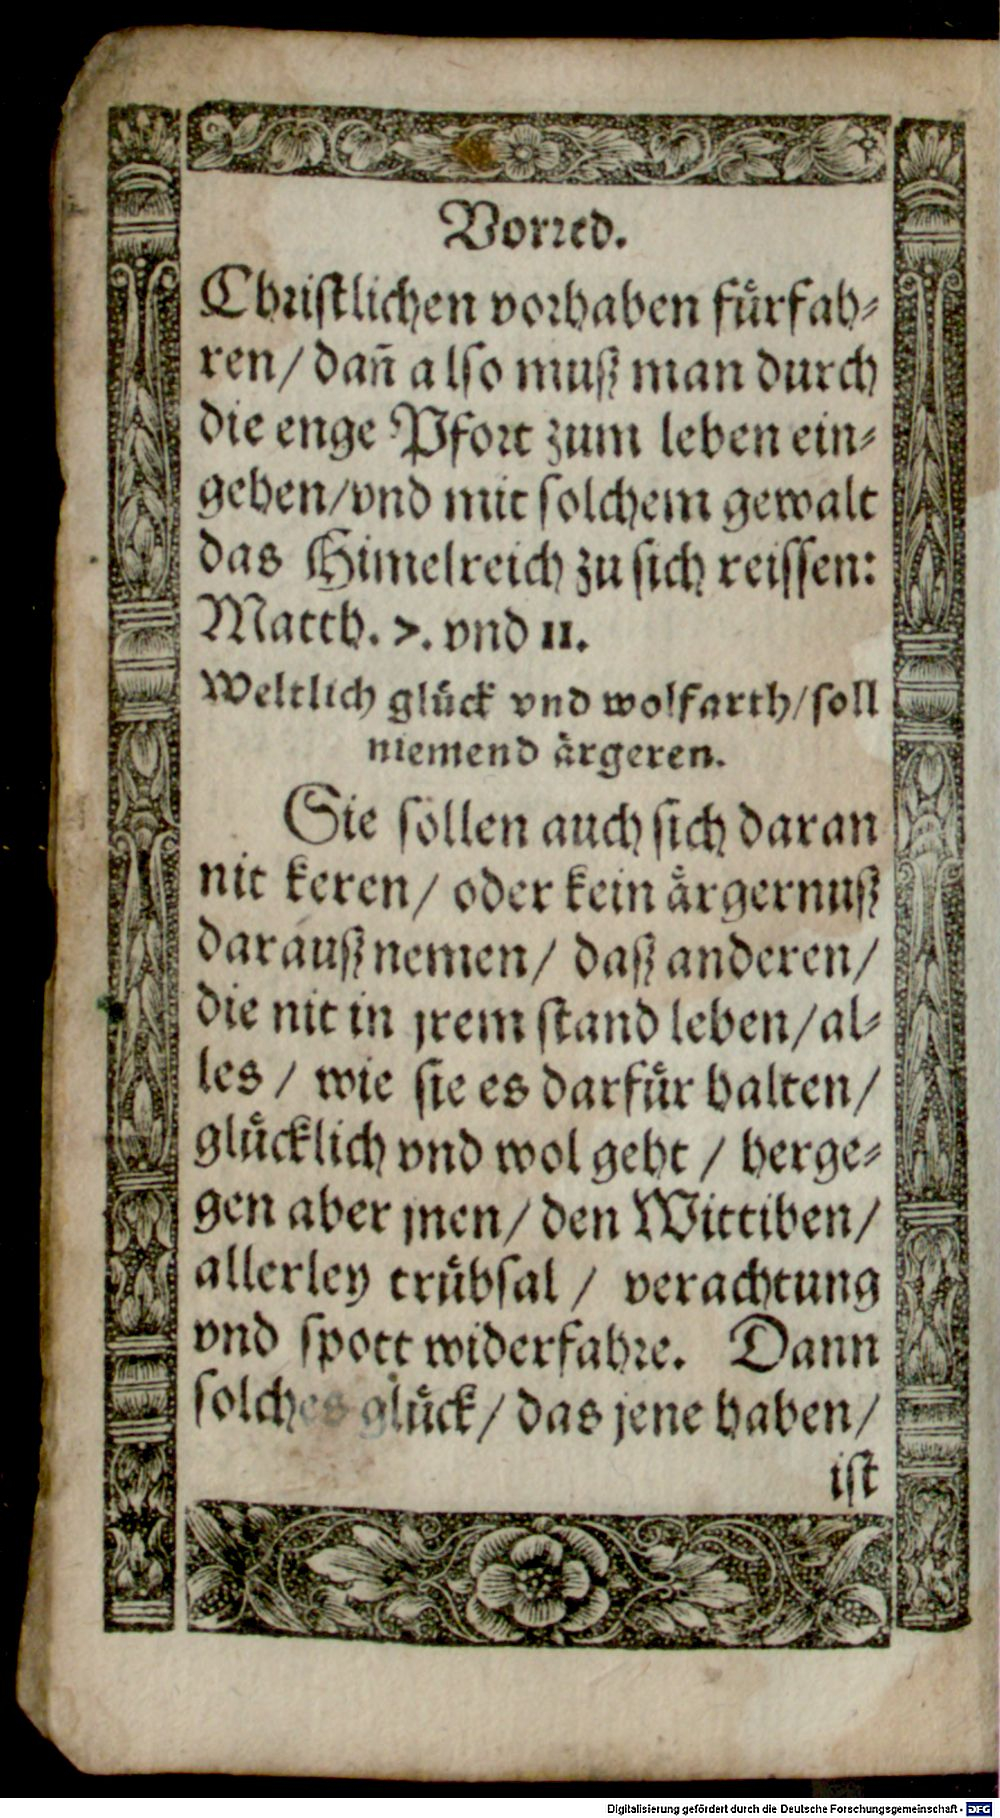 Vorred.
Christlichen vorhaben fürfah-
ren/ dañ also muß man durch
die enge Pfort zum leben ein-
gehen/vnd mit solchem gewalt
das Himelreich zu sich reissen:
Matth. 7. vnd 11.
Weltlich glück vnd wolfarth/soll
niemend ärgeren.
Sie sollen auch sich daran
nit keren/ oder kein ärgernuß
darauß nemen/ daß anderen/
die nit in jrem stand leben/al-
les/ wie sie es darfür halten/
glücklich vnd wol geht/ herge-
gen aber jnen/ den Wittiben/
allerley trübsal/ verachtung
vnd spott widerfahre. Dann
solches glück/ das jene haben/
ist
Digitalisierung gefördert durch die Deutsche Forschungsgemeinschaft - DFG